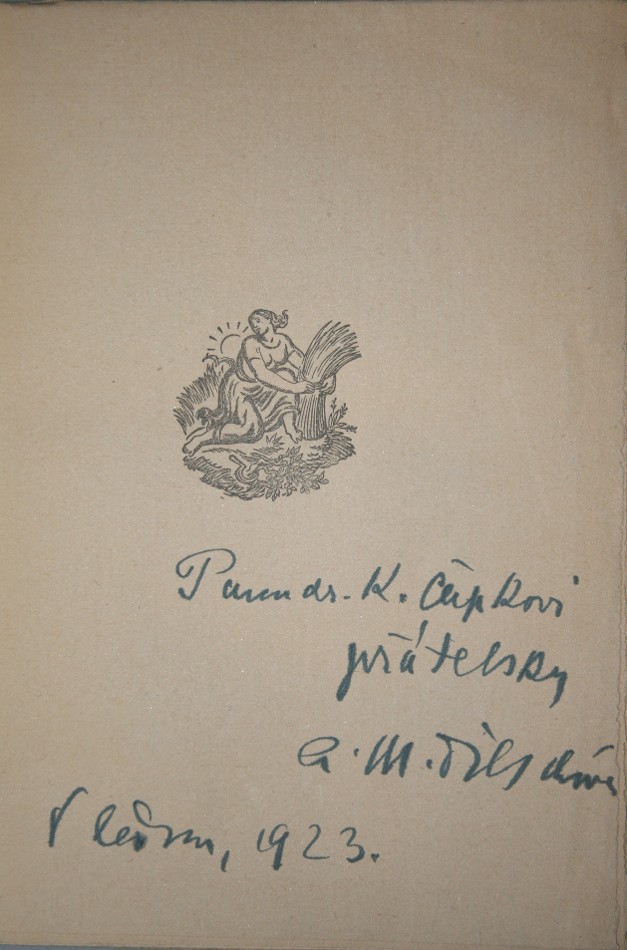 Panu dr. K. Čapkovi
přátelsky
A. M. Tilschová
V lednu, 1923.